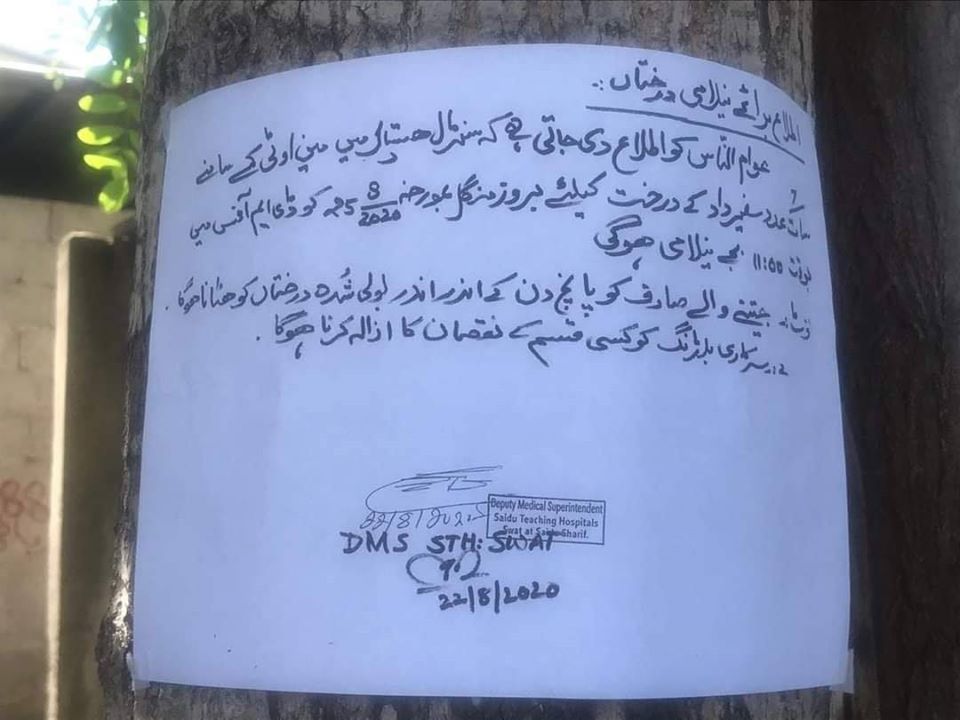 اطلاع برائے نیلامی درختاں:۔
عوام الناس کو اطلاع دی جاتی ہے کہ سنٹرل ہسپتال میں مین اوٹی کے سامنے
7
سات عدد سفیرداد کے درخت کیلئے بروز منگل بمورخہ 25 8/2020 کو ڈی ایم آفس میں
بوقت 11:00 بجے نیلامی ہوگی
نوٹ 1:۔ جیتنے والے صارف کو پانچ دن کے اندر اندر بولی شدہ درختاں کو ہٹانا ہوگا۔
2:۔ سرکاری بلڈنگ کو کسی قسم کے نقصان کا ازالہ کرنا ہوگا۔
Deputy Medical Superintendent
Saidu Teaching Hospitals
Swat at Saidu Sharif.
DMS STH: SWAT
22/8/2020